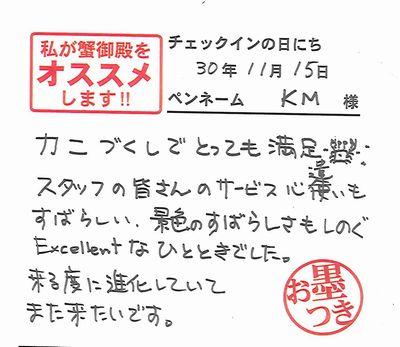 私が蟹御殿を
オススメ
します!!
チェックインの日にち
30年 11月 15日
ペンネーム KM 様
カニづくしでとっても満足
スタッフの皆さんのサービス心遣いも
すばらしい、景色のすばらしさもしのぐ
Excellentなひとときでした。
来る度に進化していて
また来たいです。
お墨つき